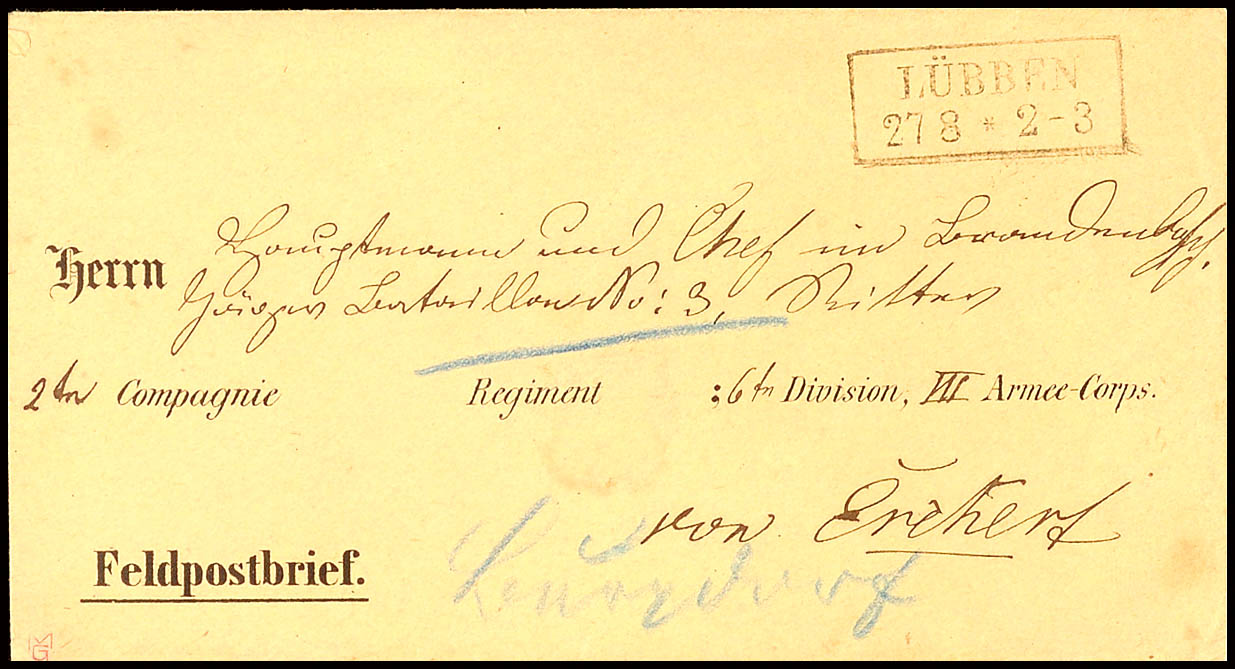 LÜBBEN
27 8 * 2-3
Herrn Hauptmann und Chef im Brandenbgsch.
Jäger Bataillon No: 3, Ritter
2ter Compagnie Regiment : 6tn Division, III Armee-Corps.
von Erckert
Feldpostbrief.
MG